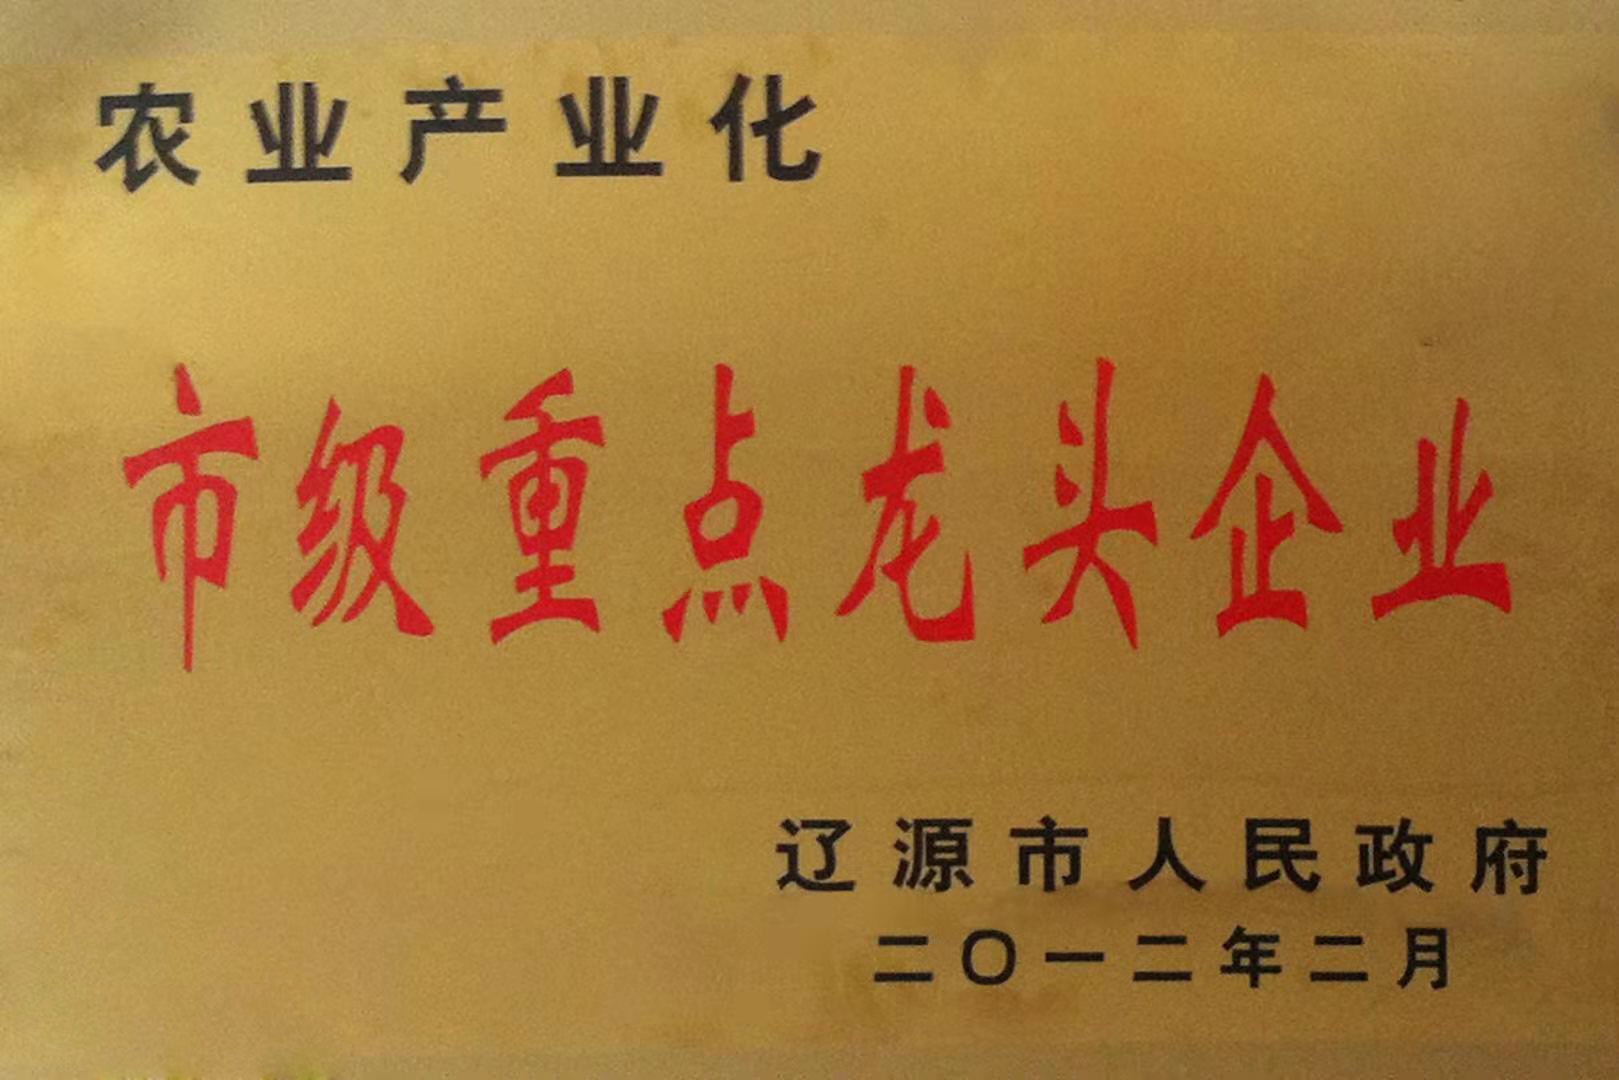 农业产业化
市级重点龙头企业
辽源市人民政府
二〇一二年二月